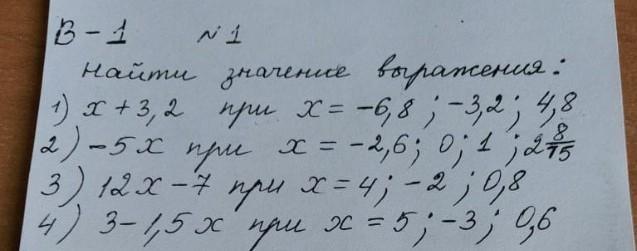 В-1 №1
Найти значение выражения:
1) x + 3,2 при x = -6,8; -3,2; 4,8
2) -5x при x = -2,6; 0; 1; 2 8/15
3) 12x - 7 при x = 4; -2; 0,8
4) 3 - 1,5x при x = 5; -3; 0,6